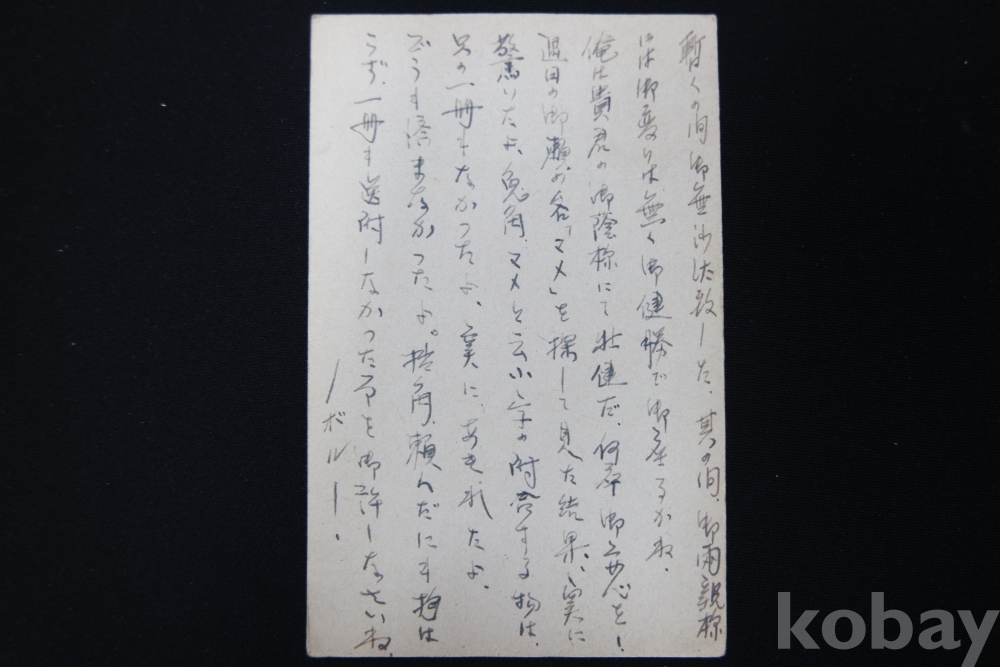 暫くの間御無沙汰致した、其の間、御両親様
には御変りは無く御健勝で御座るかね、
俺は貴君の御蔭様にて壮健だ、何卒御安心を、
過日の御頼の合「マメ」を探して見た結果、実に
驚いたよ、兎角、マメと云ふ字の附合する物は、
只の一冊もなかつたよ、実に、あきれたよ、
どうも済まなかつたよ。折角、頼んだにも拘は
らず、一冊も送附しなかつた事を御許しなさいね、
ーボルー、
kobay